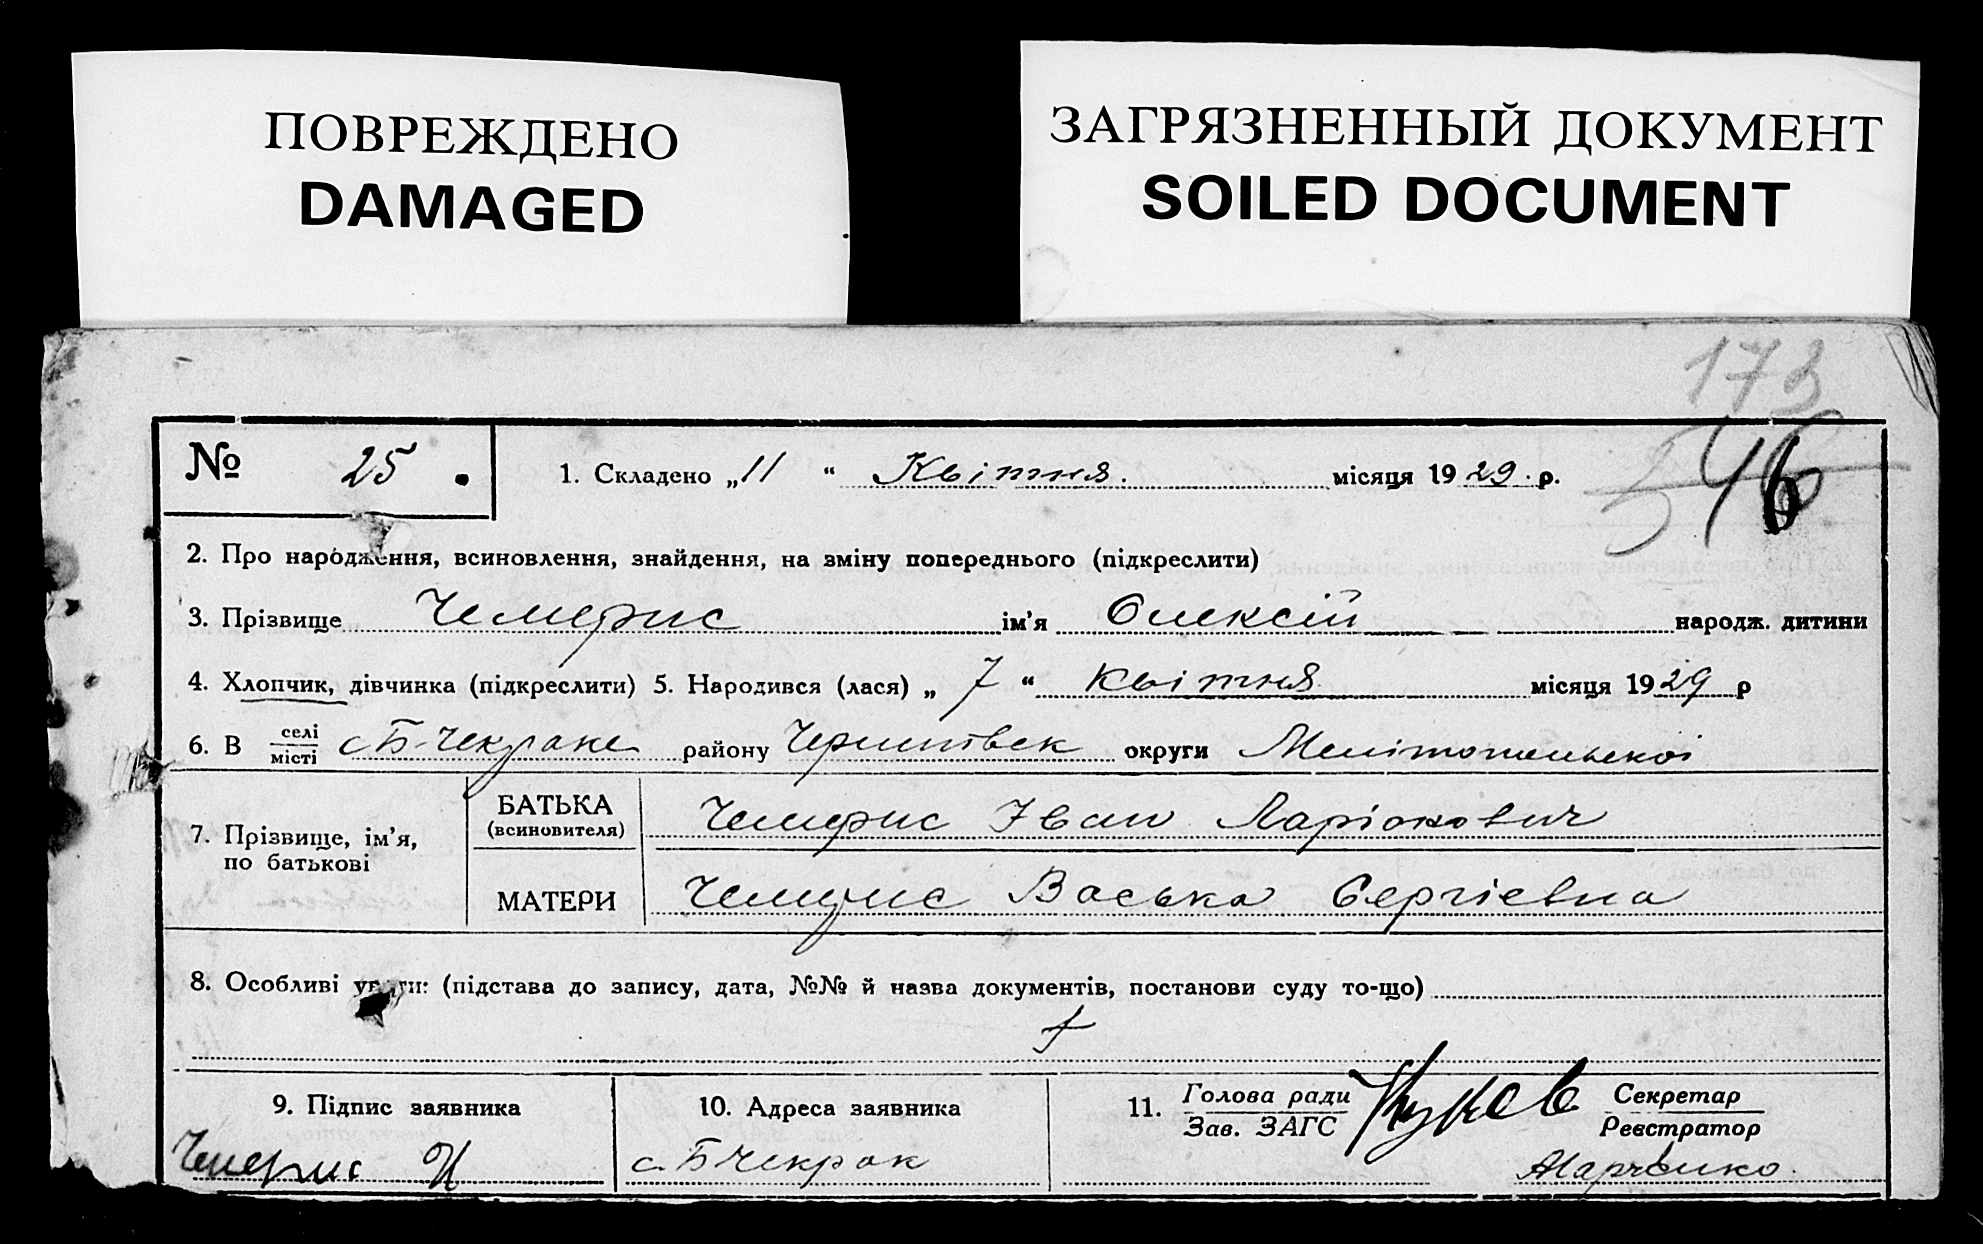 ПОВРЕЖДЕНО
DAMAGED
ЗАГРЯЗНЕННЫЙ ДОКУМЕНТ
SOILED DOCUMENT
173
46
№ 25.
1. Складено „11“ Квітня. місяця 1929 р.
2. Про народження, всиновлення, знайдення, на зміну попереднього (підкреслити)
3. Прізвище Чемерис ім’я Олексій народж. дитини
4. Хлопчик, дівчинка (підкреслити) 5. Народився (лася) „7“ квітня місяця 1929 р
6. В селі місті с Б-Чекраке району округи Мелітопольскої
7. Прізвище, ім’я, по батькові
БАТЬКА (всиновителя) Чемерис Іван Ларіонович
МАТЕРИ Чемерис Васька Сергіевна
8. Особливі уваги: (підстава до запису, дата, №№ й назва документів, постанови суду то-що)
9. Підпис заявника
Чемерис И
10. Адреса заявника
с. Б Чекрак
11. Голова ради
Зав. ЗАГС
Секретар
Реєстратор
Марченко